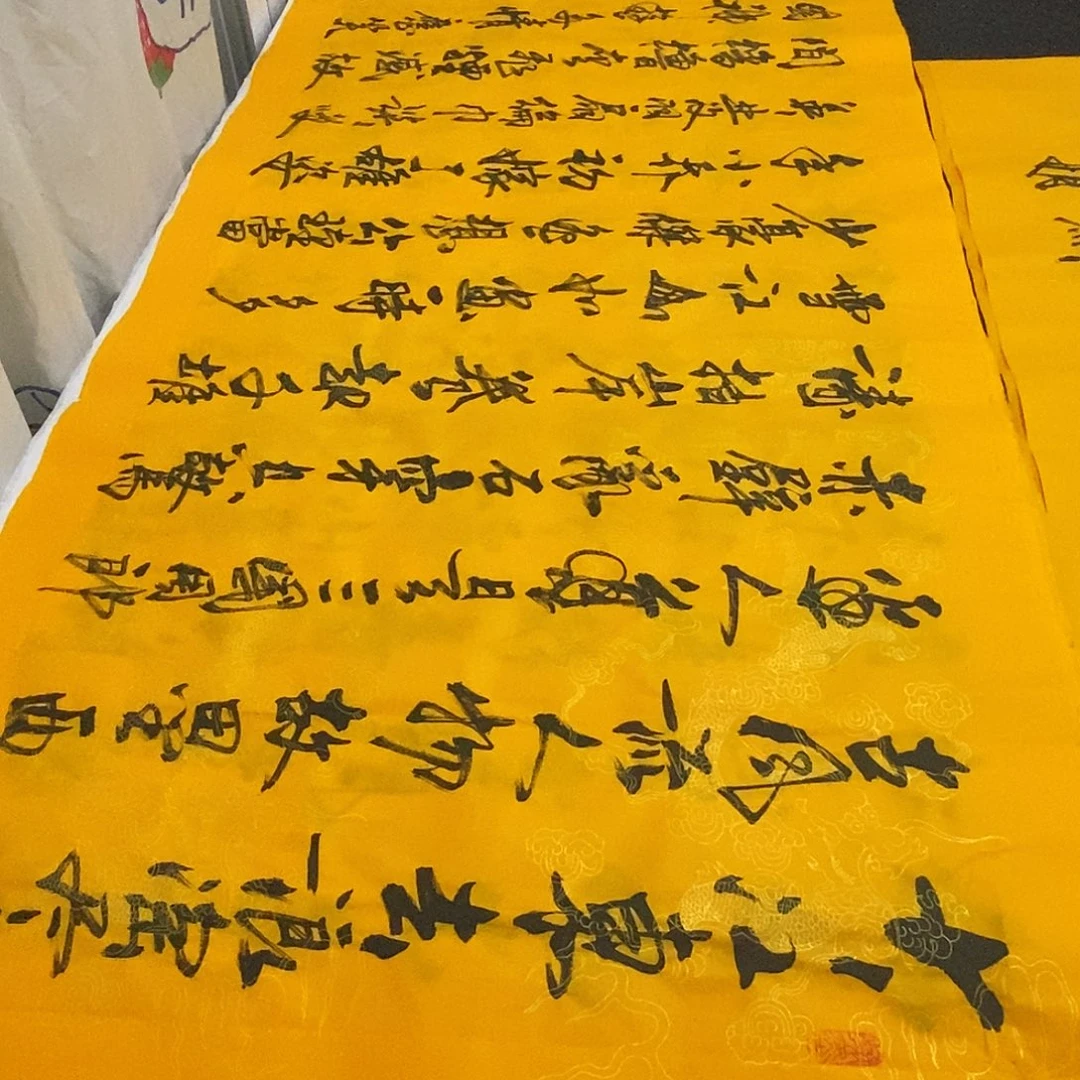 大江東去浪濤尽
古風流人物故壘西
邊人道是三國周郎
赤壁亂石崩雲驚
濤拍岸捲起千堆
雪江山如畫一時多
少豪傑遙想公瑾當
年小喬初嫁了雄姿
英發羽扇綸巾談笑
間檣櫓灰飛煙滅故
國神遊多情應笑